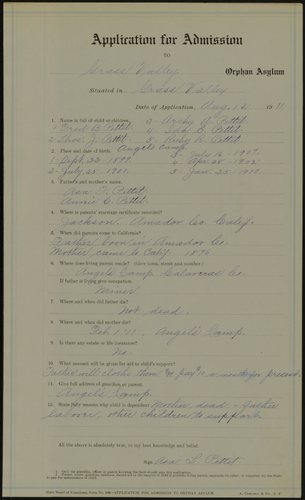 Application for Admission
TO
Grass Valley Orphan Asylum
Situated in Grass Valley
Date of Application, Aug. 12 1911
1. Name in full of child or children, 3 - Archy W. Pettit
1 - Fred B. Pettit 4 - Ida E. Pettit
2 - Thos. J. Pettit 5 - Ruby R. Pettit
2. Place and date of birth, Angels Camp
1 - Sept 22 - 1899. 3 - Feb 16 - 1907.
2 - July 25 1901. 4 - Apr 25 1905
5 - Jan 25 -
3. Father's and mother's name,
Asa T. Pettit
Annie C. Pettit.
4. Where is parents' marriage certificate recorded?
Jackson. Amador Co. Calif.
5. When did parents come to California?
Father born in Amador Co.
Mother came to Calif. 1876
6. Where does living parent reside? (Give town, street and number.)
Angels Camp Calaveras Co.
If father is living give occupation.
Miner
7. Where and when did father die?
Not dead.
8. Where and when did mother die?
Feb 1 '11. Angel's Camp.
9. Is there any estate or life insurance?
No.
10. What amount will be given for child's support?
Father will clothe them & pay a month for present.
11. Give full address of guardian or parent.
Angel's Camp.
12. State fully reasons why child is dependent. Mother dead - father
laborer, other children to support.
All the above is absolutely true, to my best knowledge and belief.
Sign Asa T. Pettit.